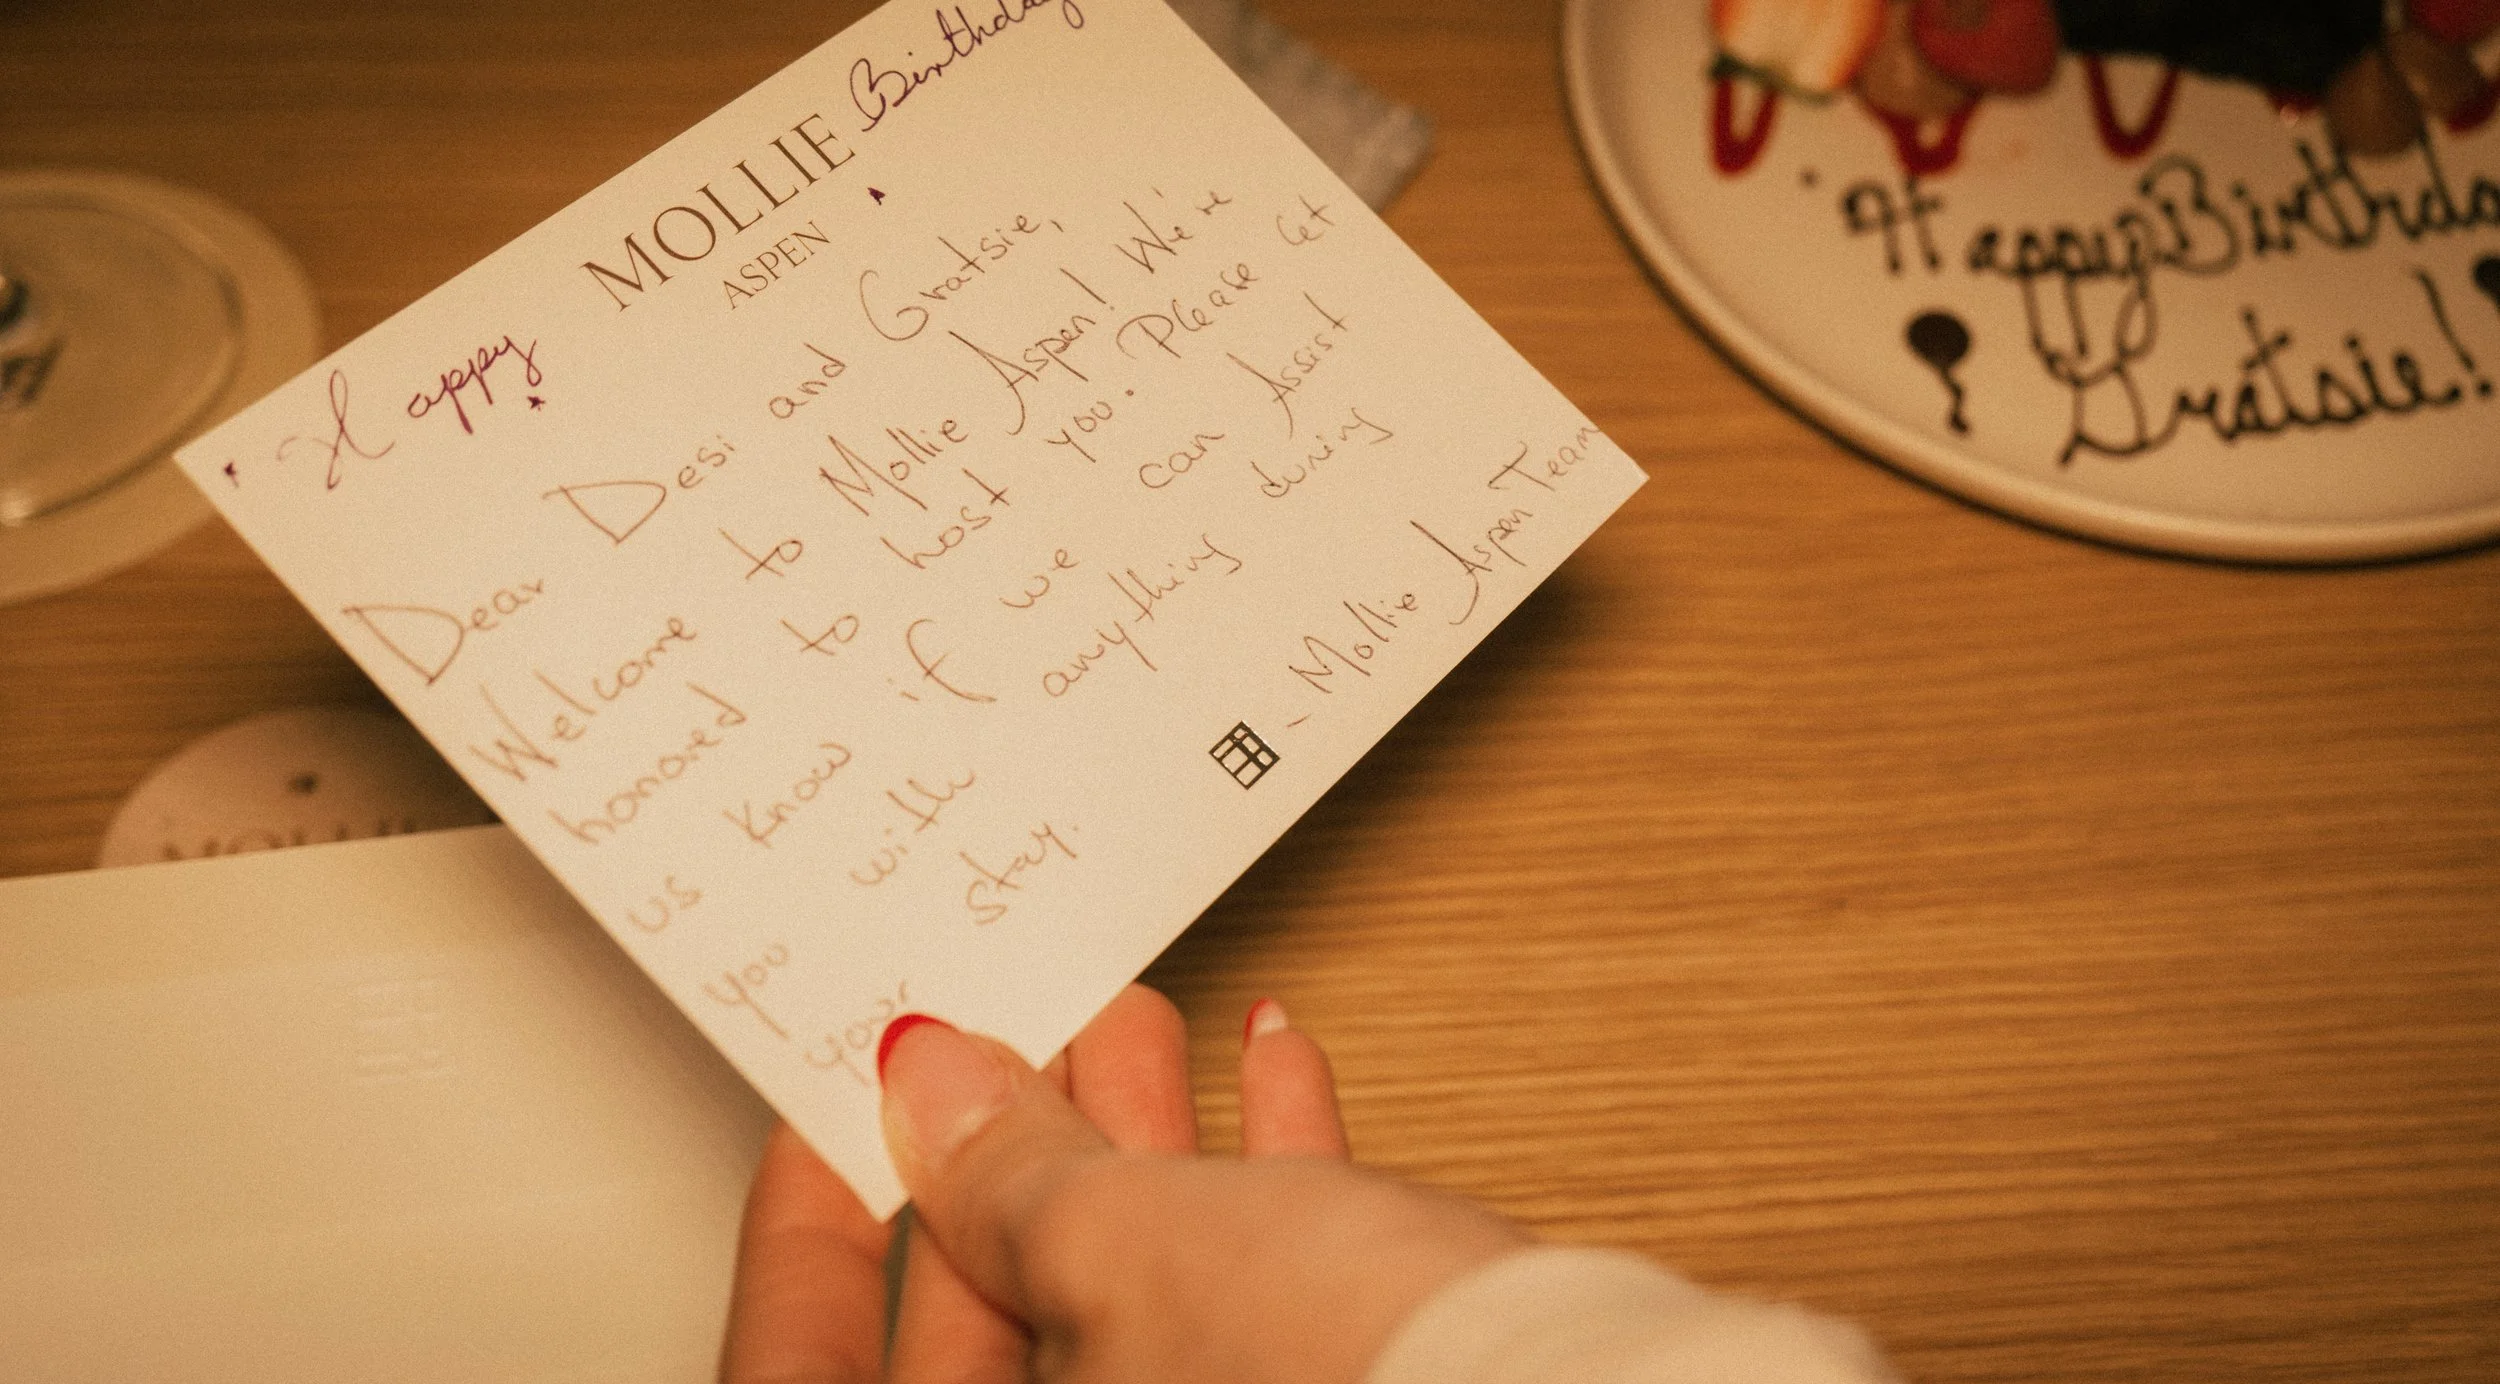 Happy Birthday
MOLLIE
ASPEN
Dear Desi and Gratsie,
Welcome to Mollie Aspen! We're
honored to host you. Please let
us know if we can Assist
you with anything during
your stay.
- Mollie Aspen Team
Happy Birthday
Gratsie!